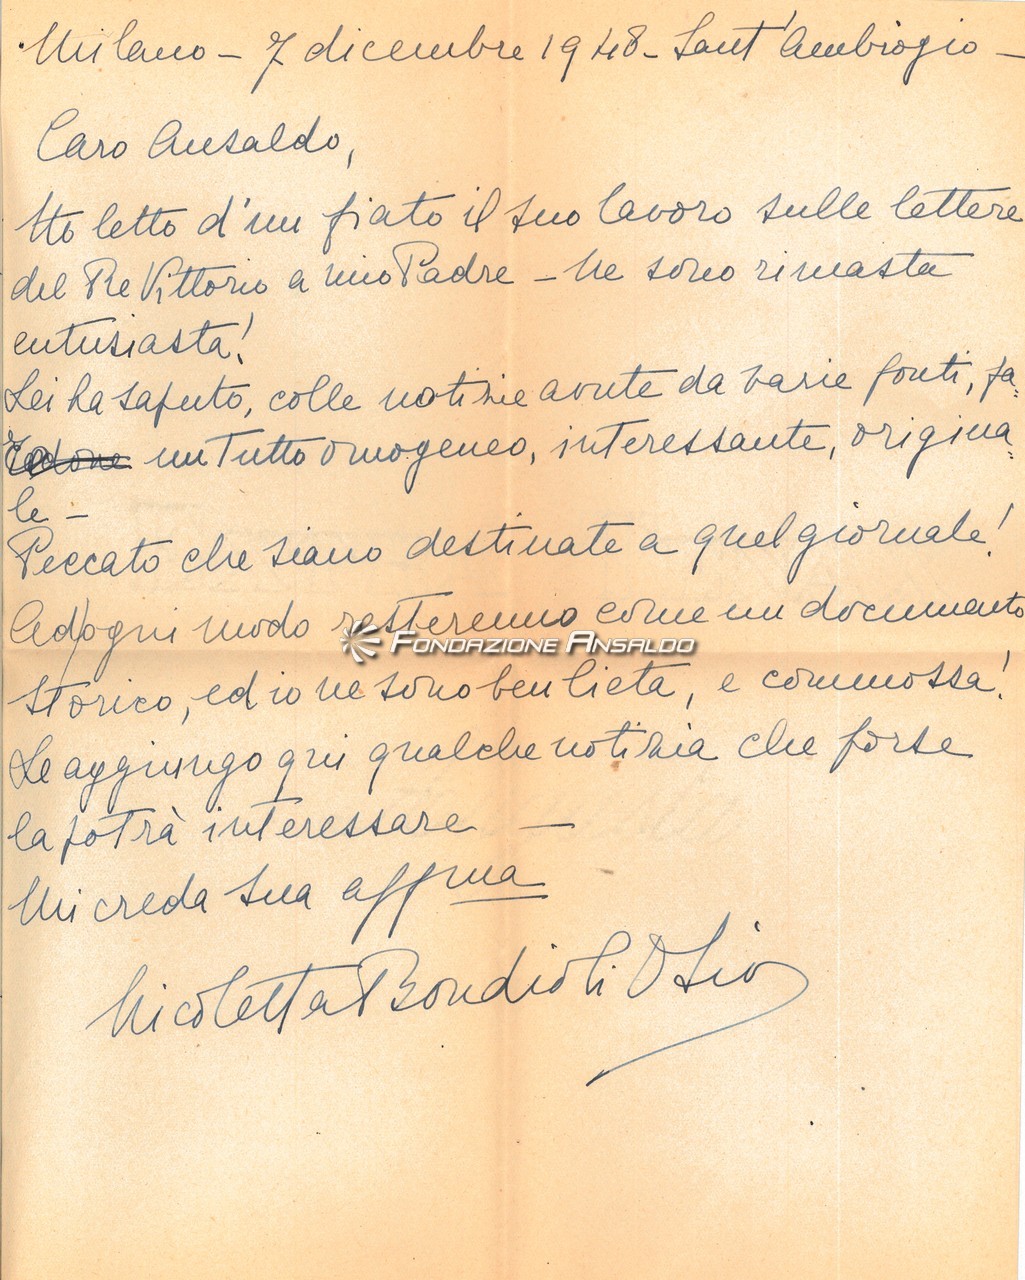 Milano - 7 dicembre 1948 - Sant'Ambrogio -
Caro Ansaldo,
Ho letto d'un fiato il suo lavoro sulle lettere
del Re Vittorio a mio Padre - Ne sono rimasta
entusiasta!
Lei ha saputo, colle notizie avute da varie fonti, fa=
un tutto omogeneo, interessante, origina=
le -
Peccato che siano destinate a quel giornale!
Ad ogni modo resteranno come un documento
FONDAZIONE ANSALDO
storico, ed io ne sono ben lieta, e commossa!
Le aggiungo qui qualche notizia che forse
la potrà interessare -
Mi creda sua affma
Nicoletta Bondioli Osio